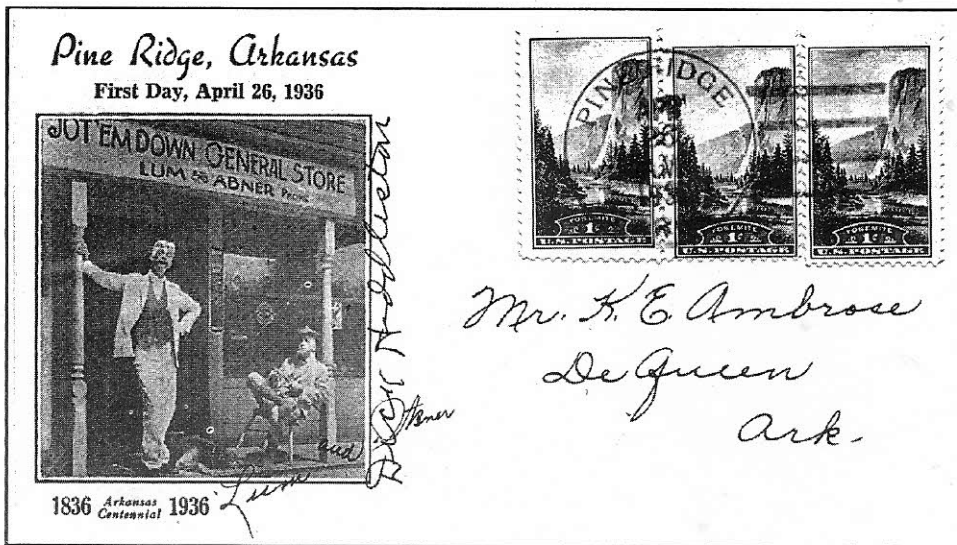 Pine Ridge, Arkansas
First Day, April 26, 1936
JOT 'EM DOWN GENERAL STORE
LUM & ABNER Props.
Dick Huddleston
Lum and Abner
1836 Arkansas Centennial 1936
PINE RIDGE
APR
26
YOSEMITE
1¢
U.S. POSTAGE
YOSEMITE
1¢
U.S. POSTAGE
YOSEMITE
1¢
U.S. POSTAGE
Mr. K. E. Ambrose
De Queen
Ark.